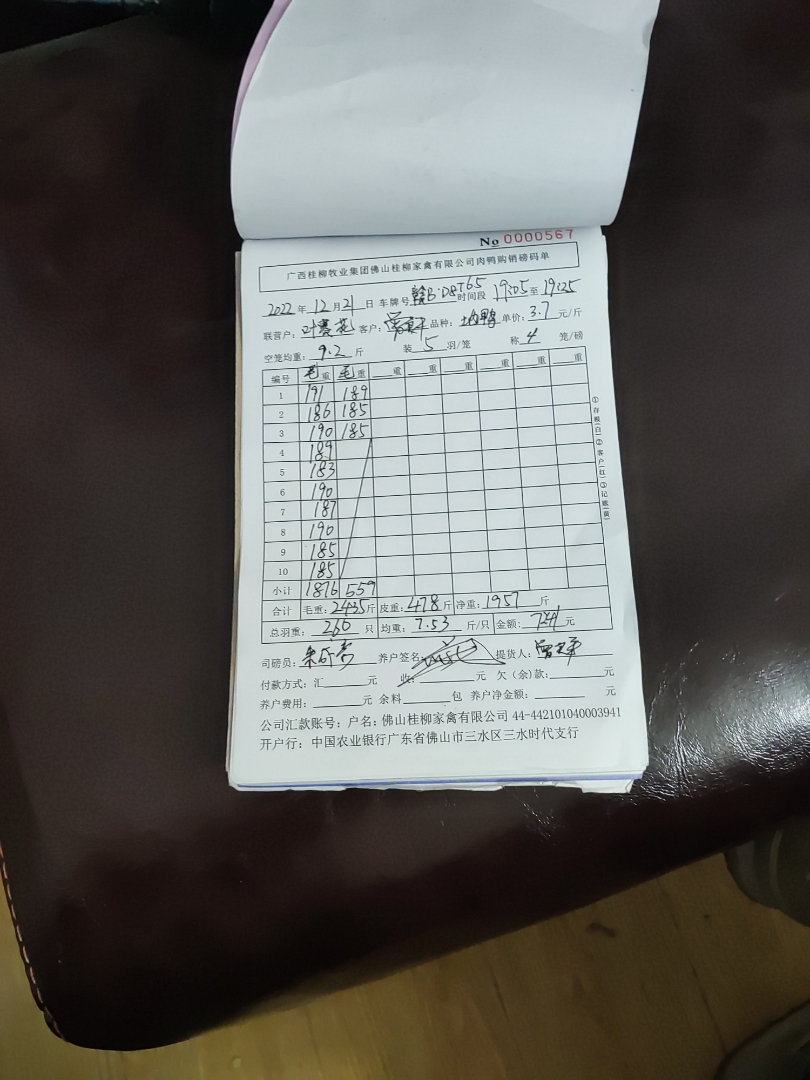 No 0000567
广西桂柳牧业集团佛山桂柳家禽有限公司肉鸭购销磅码单
2022年12月21日 车牌号 赣B·D8T65 时间段 19:05至19:25
联营户: 叶 花 客户: 品种: 鸭 单价: 3.7 元/斤
空笼均重: 9.2 斤 装 5 羽/笼 称 4 笼/磅
编号 毛重 毛重 重 重 重 重 重
1 191 189
2 186 185
3 190 185
4 189
5 183
6 190
7 187
8 190
9 185
10 185
小计 1876 559
合计 毛重: 2435斤 皮重: 478斤 净重: 1957 斤
总羽重: 260 只 均重: 7.53 斤/只 金额: 7241元
司磅员: 朱 养户签名: 提货人:
付款方式: 汇 元 收: 元 欠(余)款: 元
养户费用: 元 余料 包 养户净金额: 元
公司汇款账号: 户名: 佛山桂柳家禽有限公司 44-442101040003941
开户行: 中国农业银行广东省佛山市三水区三水时代支行
①存根(白)②客户(红)③记账(黄)